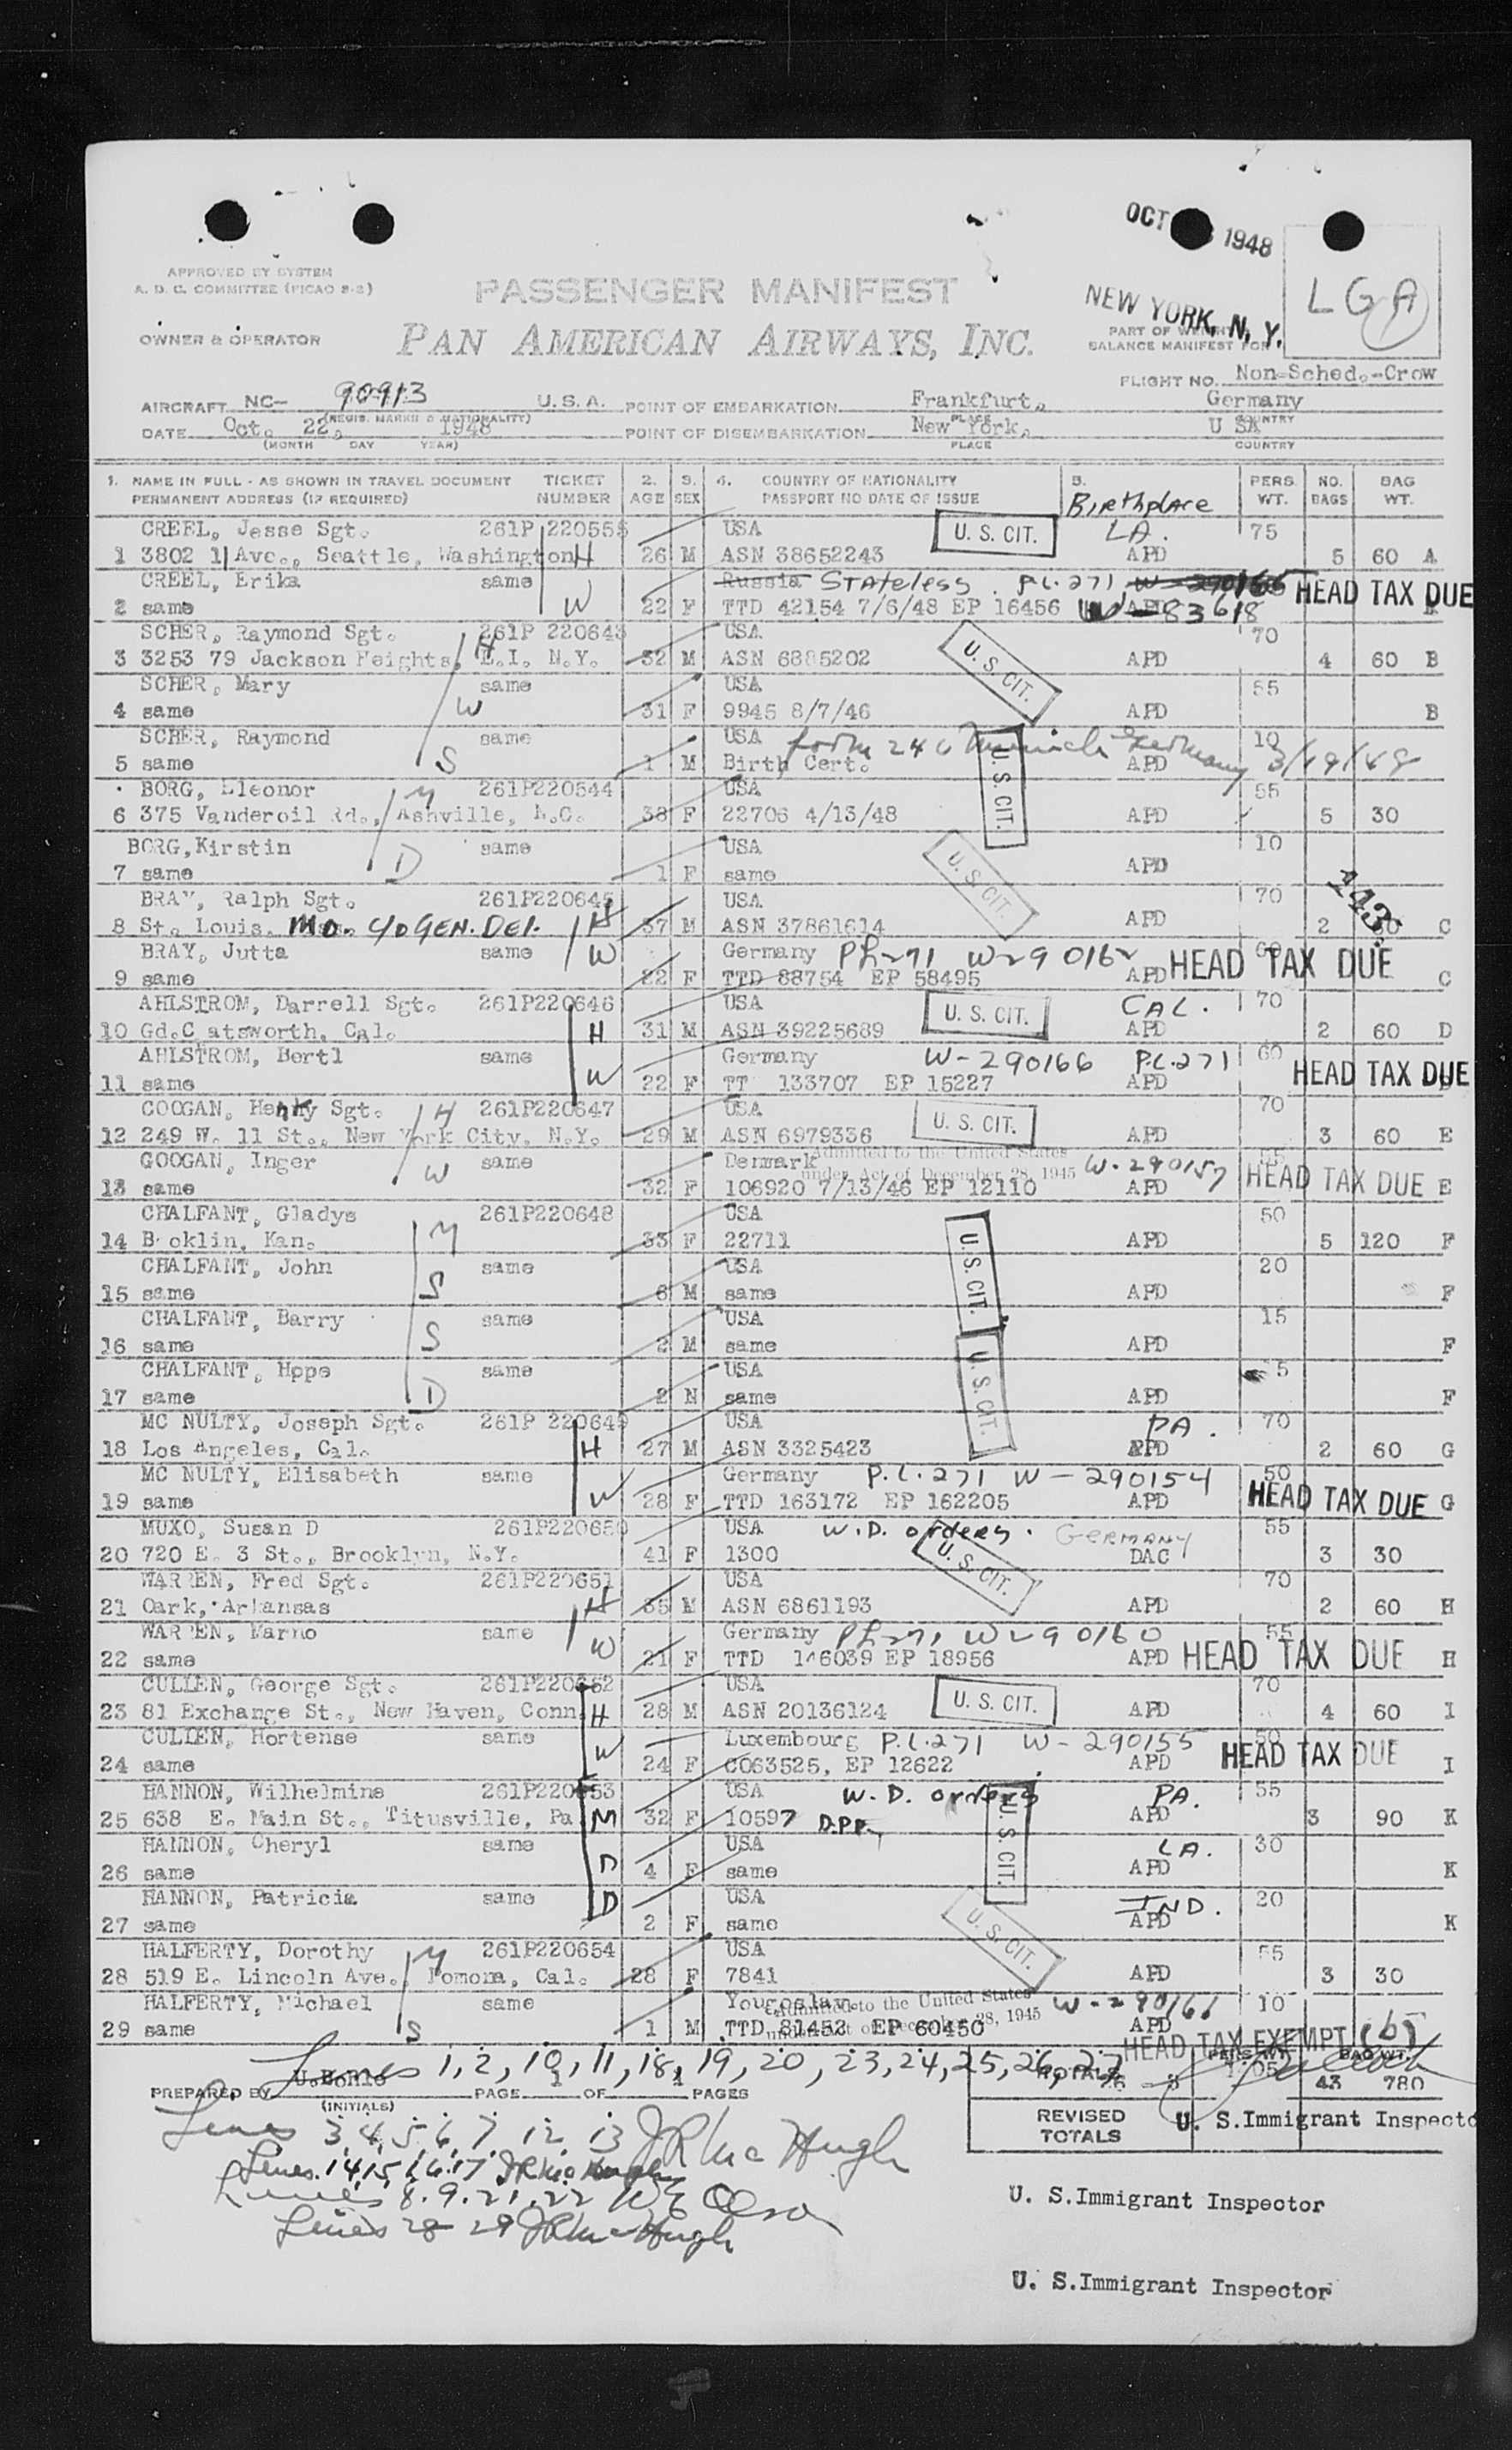 OCT 1948
NEW YORK, N. Y.
LGA
APPROVED BY SYSTEM
A. D. C. COMMITTEE (PICAO 8-2)
PASSENGER MANIFEST
OWNER & OPERATOR
PAN AMERICAN AIRWAYS, INC.
PART OF WEIGHT
BALANCE MANIFEST FOR
FLIGHT NO. Non-Sched.-Crow
AIRCRAFT NC- 90913 U.S.A. POINT OF EMBARKATION Frankfurt, Germany
(REGIS. MARKS & NATIONALITY) PLACE COUNTRY
DATE Oct. 22, 1948 POINT OF DISEMBARKATION New York, U SA
(MONTH DAY YEAR) PLACE COUNTRY
1. NAME IN FULL - AS SHOWN IN TRAVEL DOCUMENT TICKET 2. 3. 4. COUNTRY OF NATIONALITY 5. PERS. NO. BAG
PERMANENT ADDRESS (IF REQUIRED) NUMBER AGE SEX PASSPORT NO DATE OF ISSUE Birthplace WT. BAGS WT.
CREEL, Jesse Sgt. 261P 220555 USA U. S. CIT. LA. 75
1 3802 1 Ave., Seattle, Washington H 26 M ASN 38652243 APD 5 60 A
CREEL, Erika same Russia Stateless. P.L. 271, HEAD TAX DUE
2 same W 22 F TTD 42154 7/6/48 EP 16456 W-83618
SCHER, Raymond Sgt. 261P 220643 USA 70
3 3253 79 Jackson Heights, L.I. N.Y. H 32 M ASN 6885202 U. S. CIT. APD 4 60 B
SCHER, Mary same USA 55
4 same W 31 F 9945 8/7/46 APD B
SCHER, Raymond same USA form 240 Munich Germany 3/19/48 10
5 same S 1 M Birth Cert. U. S. CIT. APD
BORG, Eleonor M 261P220544 USA 55
6 375 Vanderoil Rd., Ashville, N.C. 38 F 22706 4/13/48 APD 5 30
BORG, Kirstin same USA 10
7 same D 1 F same U. S. CIT. APD
BRAY, Ralph Sgt. 261P220645 USA 70
8 St. Louis. MO. c/o GEN. Del. H 37 M ASN 37861614 APD 2 C
BRAY, Jutta same W Germany PL271 W290162 60 HEAD TAX DUE
9 same 22 F TTD 88754 EP 58495 APD C
AHLSTROM, Darrell Sgt. 261P220646 USA U. S. CIT. CAL. 70
10 Gd.C atsworth, Cal. H 31 M ASN 39225689 APD 2 60 D
AHLSTROM, Bertl same Germany W-290166 P.L.271 60
11 same W 22 F TT 133707 EP 15227 APD HEAD TAX DUE
COOGAN, Henry Sgt. H 261P220647 USA 70
12 249 W. 11 St., New York City, N.Y. 29 M ASN 6979336 U. S. CIT. APD 3 60 E
GOOGAN, Inger same Denmark Admitted to the United States under Act of December 28, 1945 W-290157 55
13 same W 32 F 106920 7/13/46 EP 12110 APD HEAD TAX DUE E
CHALFANT, Gladys 261P220648 USA 50
14 B oklin, Kan. M 33 F 22711 APD 5 120 F
CHALFANT, John same USA U.S. CIT. 20
15 same S 6 M same APD F
CHALFANT, Barry same USA 15
16 same S 2 M same APD F
CHALFANT, Hope same USA U. S. CIT. 5
17 same D 2 N same APD F
MC NULTY, Joseph Sgt. 261P 220649 USA PA. 70
18 Los Angeles, Cal. H 27 M ASN 3325423 APD 2 60 G
MC NULTY, Elisabeth same Germany P.L.271 W-290154 50
19 same W 28 F TTD 163172 EP 162205 APD HEAD TAX DUE G
MUXO, Susan D 261P220650 USA W.D. orders. GERMANY 55
20 720 E. 3 St., Brooklyn, N.Y. 41 F 1300 U. S. CIT. DAC 3 30
WARREN, Fred Sgt. 261P220651 USA 70
21 Oark, Arkansas H 35 M ASN 6861193 APD 2 60 H
WARREN, Marno same Germany PL271 W290160 55
22 same W 21 F TTD 146039 EP 18956 APD HEAD TAX DUE H
CULLEN, George Sgt. 261P220652 USA 70
23 81 Exchange St., New Haven, Conn H 28 M ASN 20136124 U. S. CIT. APD 4 60 I
CULLEN, Hortense same Luxembourg P.L.271 W-290155 50
24 same W 24 F 0063525, EP 12622 APD HEAD TAX DUE I
HANNON, Wilhelmine 261P220653 USA W.D. orders PA. 55
25 638 E. Main St., Titusville, Pa M 32 F 10597 D.P.P. APD 3 90 K
HANNON, Cheryl same USA U. S. CIT. LA. 30
26 same D 4 F same APD K
HANNON, Patricia same USA IND. 20
27 same D 2 F same APD K
HALFERTY, Dorothy M 261P220654 USA U. S. CIT. 55
28 519 E. Lincoln Ave., Pomona, Cal. 28 F 7841 APD 3 30
HALFERTY, Michael same Yougoslav Admitted to the United States under Act of December 28, 1945 W-290161 10
29 same S 1 M TTD 81453 EP 60450 APD HEAD TAX EXEMPT (b)
Lines 1, 2, 10, 11, 18, 19, 20, 23, 24, 25, 26, 27
PREPARED BY PAGE 1 OF 1 PAGES TOTALS 26 - 3 PERS. WT. BAG WT. 43 780
(INITIALS)
REVISED TOTALS U. S. Immigrant Inspector
Lines 3, 4, 5, 6, 7, 12, 13 JR McHugh
Lines 14, 15, 16, 17 JR McHugh
Lines 8. 9. 21. 22 W E Olson
U. S.Immigrant Inspector
Lines 28 29 JR McHugh
U. S.Immigrant Inspector